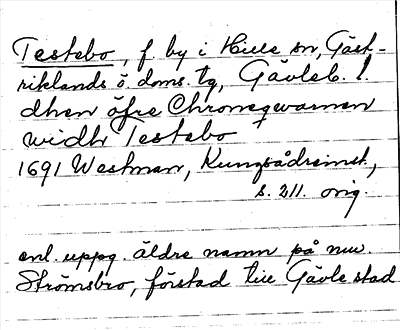 Testebo, f by i Hille sn, Gäst-
riklands ö. doms. tg, Gävleb. l.
dhen öfre Chroneqwarnen
widh Testebo
1691 Westman, Kungsådreinst.,
s. 211. orig.
enl. uppg. äldre namn på nuv.
Strömsbro, förstad till Gävle stad